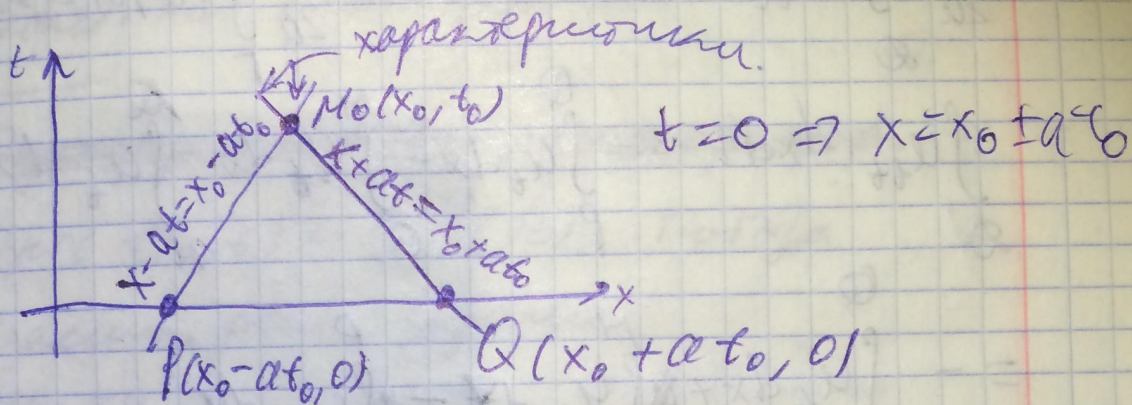 характеристики.
t
M₀(x₀, t₀)
t=0 => x=x₀±at₀
x-at=x₀-at₀
x+at=x₀+at₀
x
P(x₀-at₀, 0)
Q(x₀+at₀, 0)